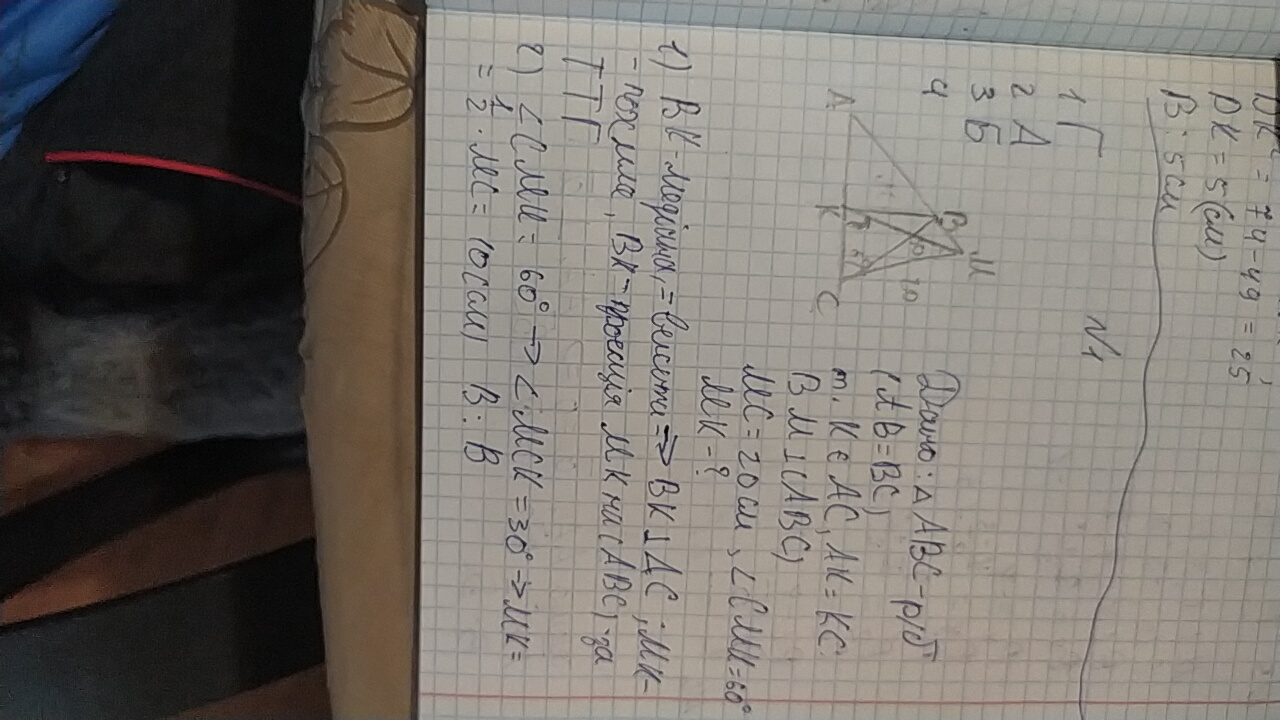 DK² = 74-49 = 25
DK = 5(см)
В: 5см
№1
1 Г
2 А
3 Б
4
М
В
20
А
К
С
Дано: △ ABC - р/б
(AB=BC)
т. K є AC, AK = KC
BM⊥(ABC)
MC = 20см, ∠CMK=60°
MK-?
1) BK-медіана, = висота => BK⊥AC ; MK-
- похила, BK-проекція MK на (ABC) за
ТТП
2) ∠CMK = 60° → ∠MCK = 30° → MK=
= 1/2 · MC = 10(см) В: В